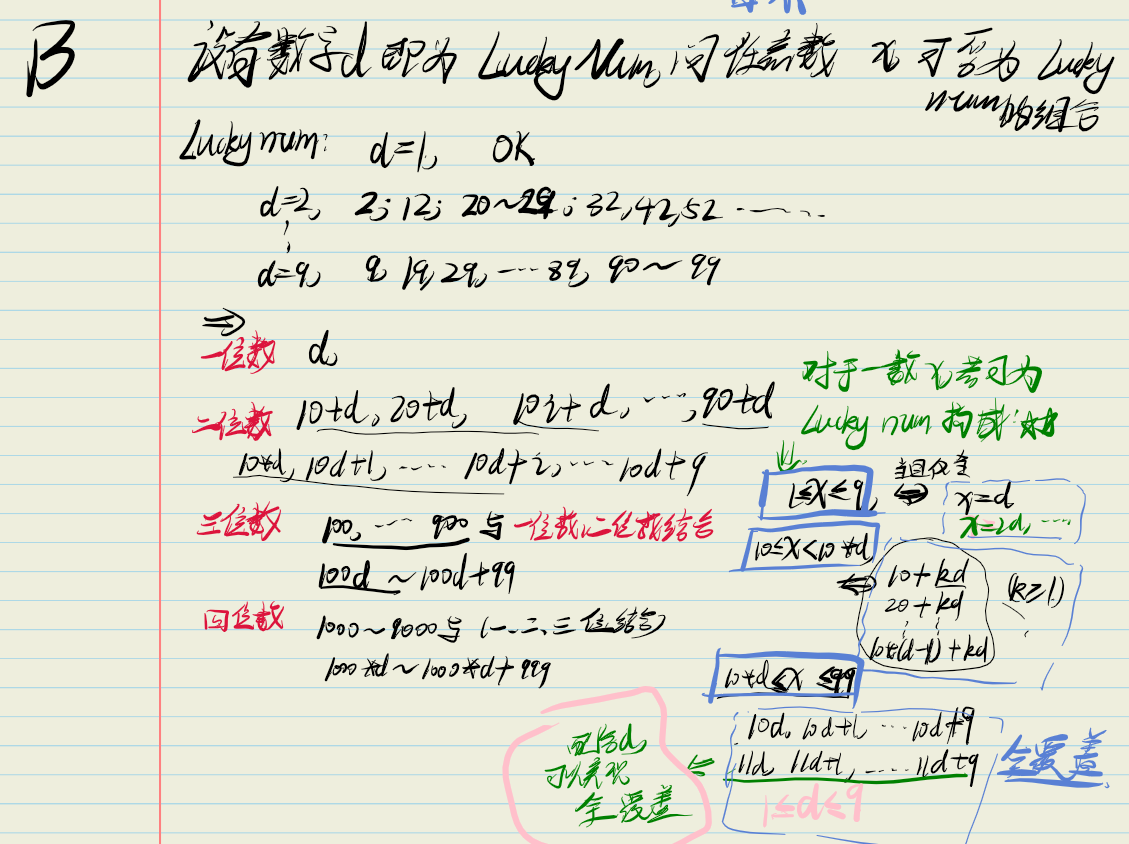 B
没有数字d即为 Lucky Num, 问性 x 可否为 Lucky
num的组合
Lucky num: d=1, OK
d=2, 2; 12; 20~29; 32, 42, 52 ......
d=9, 9, 19, 29, ... 89, 90~99
⇒
一位数 d,
二位数 10+d, 20+d, 10i+d, ..., 90+d
10*d, 10d+1, .... 10d+i, ... 10d+9
三位数 100, ... 900 与 一位数、二位数结合
100d ~ 100d+99
四位数 1000~9000与(一、二、三位结合)
1000*d ~ 1000*d+999
对于一数x若可为
Lucky num 构成:
1≤x≤9, ⇔ 当且仅当
x=d
x=2d, ...
10≤x<10*d
⇔ 10+kd (k≥1)
20+kd
10*(d-1)+kd
10*d≤x≤99
10d, 10d+1, ... 10d+9
11d, 11d+1, .... 11d+9
全覆盖
1≤d≤9
⇐ 配合d,
可以实现
全覆盖